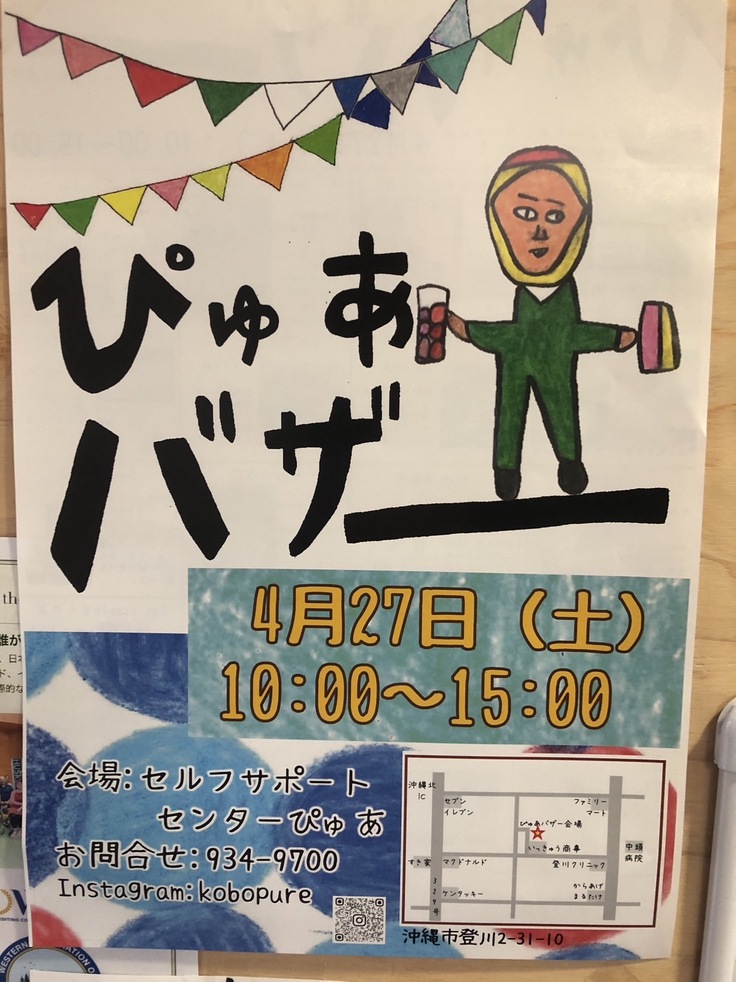 ぴゅあ
バザー
4月27日（土）
10:00～15:00
会場:セルフサポート
センターぴゅあ
お問合せ:934-9700
Instagram:kobopure
沖縄北
IC
セブン
イレブン
ファミリー
マート
ぴゅあバザー会場
いっきゅう商事
中頭
病院
すき家
マクドナルド
登川クリニック
329号
ケンタッキー
からあげ
まるたけ
沖縄市登川2-31-10
th
誰が